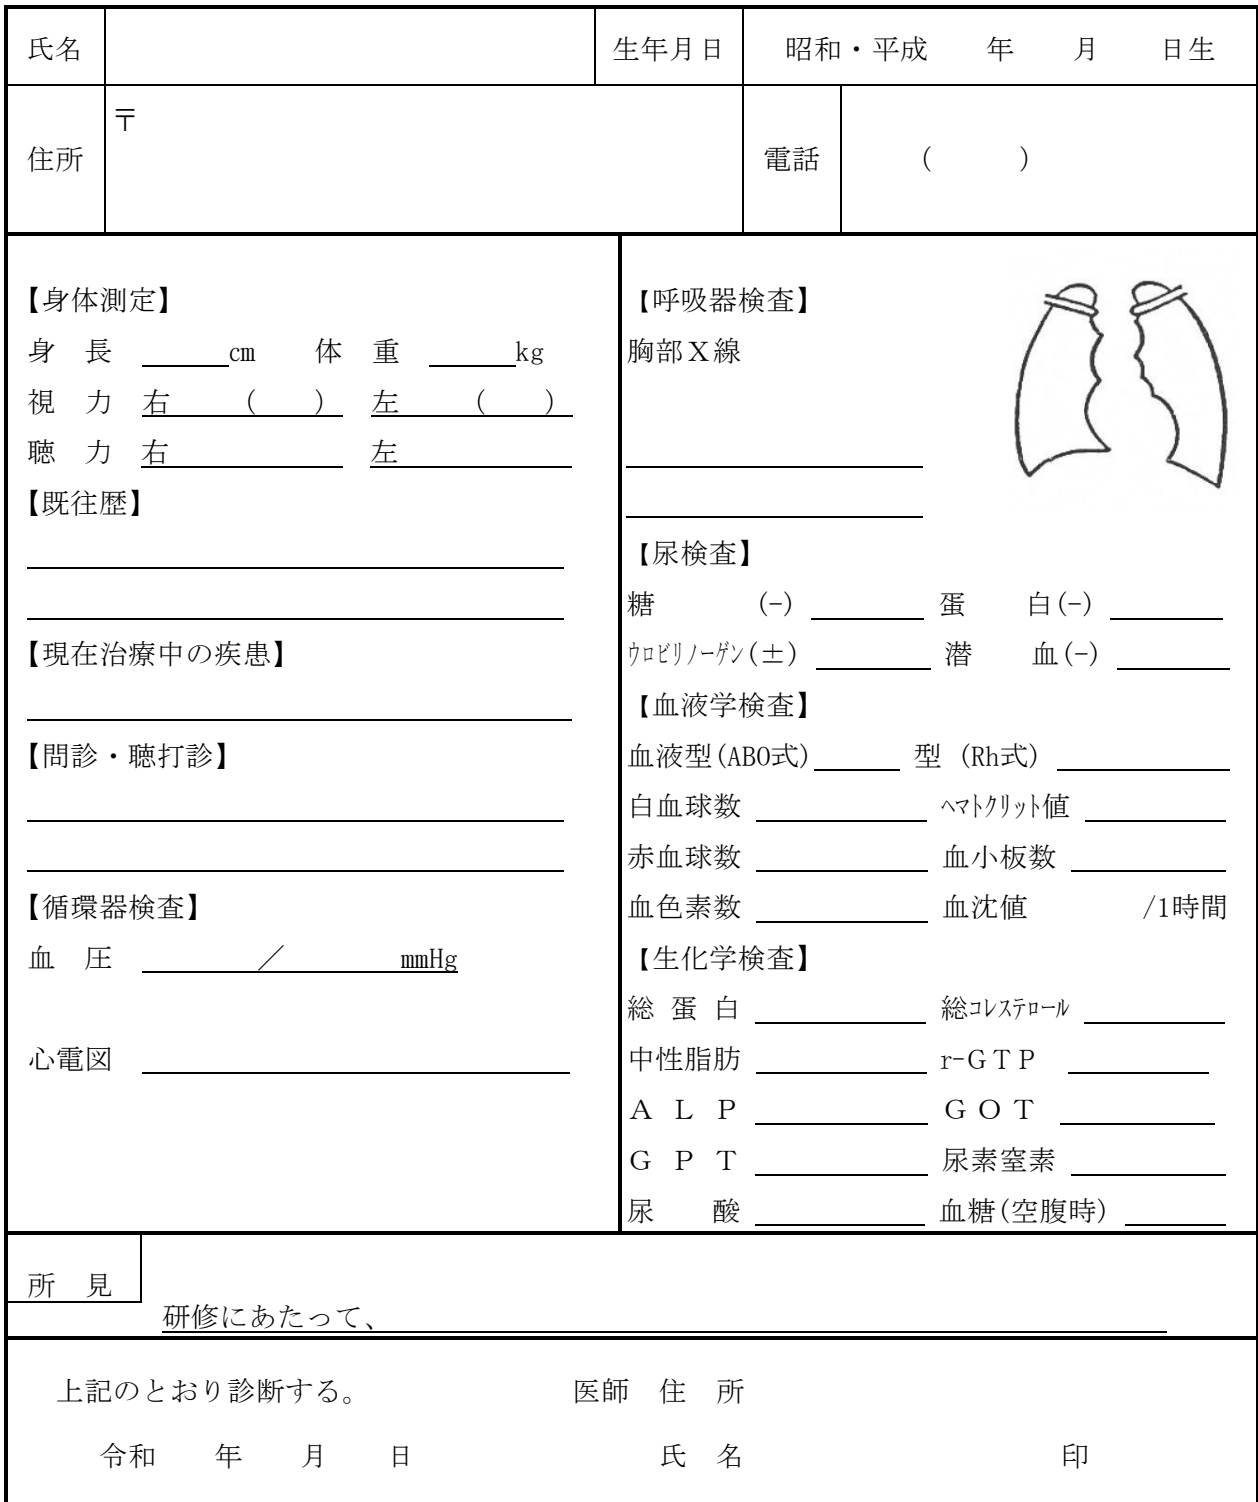 氏名 生年月日 昭和・平成 年 月 日生
〒
住所 電話 ( )
【身体測定】
身 長 cm 体 重 kg
視 力 右 ( ) 左 ( )
聴 力 右 左
【既往歴】
【現在治療中の疾患】
【問診・聴打診】
【循環器検査】
血 圧 ／ mmHg
心電図
【呼吸器検査】
胸部Ｘ線
【尿検査】
糖 (-) 蛋 白(-)
ｳﾛﾋﾞﾘﾉｰｹﾞﾝ(±) 潜 血(-)
【血液学検査】
血液型(ABO式) 型 (Rh式)
白血球数 ﾍﾏﾄｸﾘｯﾄ値
赤血球数 血小板数
血色素数 血沈値 /1時間
【生化学検査】
総 蛋 白 総ｺﾚｽﾃﾛｰﾙ
中性脂肪 r-ＧＴＰ
Ａ Ｌ Ｐ Ｇ Ｏ Ｔ
Ｇ Ｐ Ｔ 尿素窒素
尿 酸 血糖(空腹時)
所 見
研修にあたって、
上記のとおり診断する。 医師 住 所
令和 年 月 日 氏 名 印